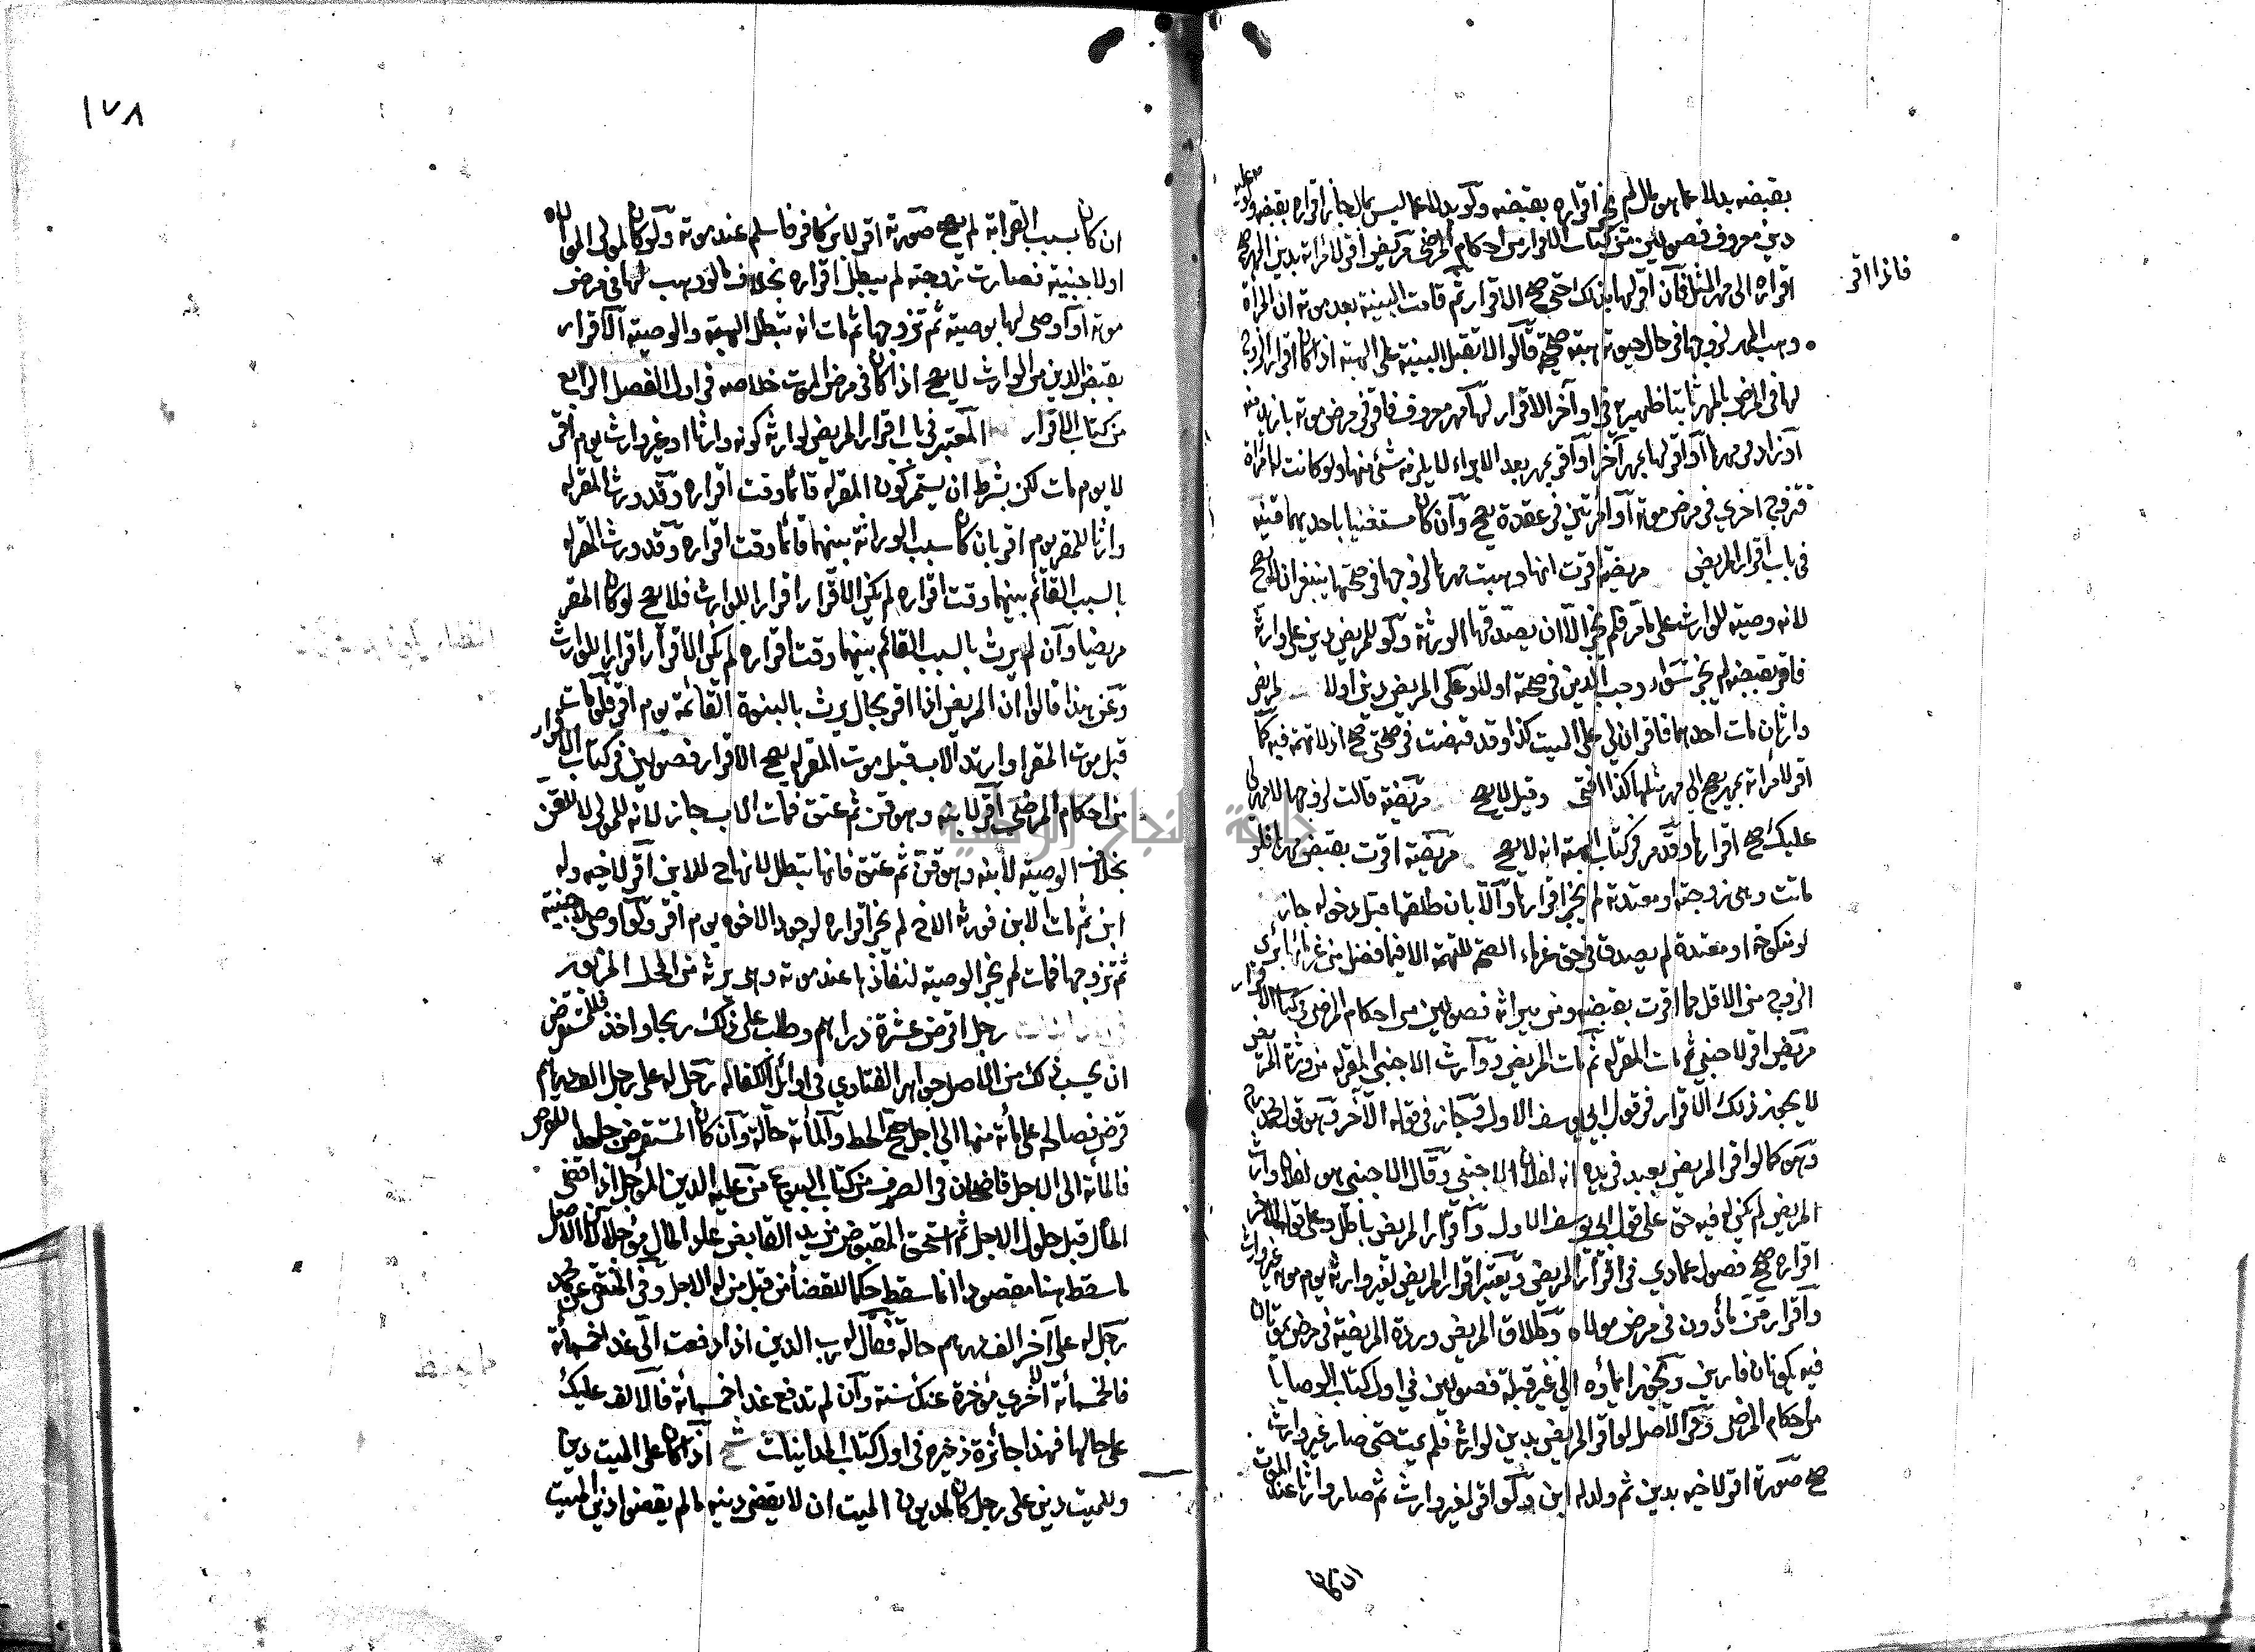 بقبضه بدلا عما هو مال لم يجز اقراره بقبضه ولو بدلا عما ليس بمال جاز اقراره بقبضه ولو عليه
دين معروف فصولين من كتاب الاقرار من احكام المرضى مريض اقر لامراته بدين المهر صح
اقراره الى مهر المثل فان اقر لها بذلك حتى صح الاقرار ثم قامت البينة بعد موته ان المراة
فاذا اقر
وهبت المهر لزوجها في حال حيوته هبة صحيحة قالوا لا تقبل البينة على الهبة اذا كان اقرار الزوج
لها في المرض بالمهر ثابتا ظهيريه في اواخر الاقرار لها مهر معروف فاقر في مرض موته بازيد منه
او زاد في مهرها او اقر لها بمهر آخر او اقر بمهر بعد الابراء لا يلزمه شئ منها ولو كانت له امراة
فتزوج اخرى في مرض موته او امرتين في عقدة يصح وان كان مستغنيا باحديهما قنيه
في باب اقرار المريض مريضة اقرت انها وهبت مهرها لزوجها في صحتها ينبغي ان لا يصح
لانه وصية للوارث على ما مر فلم يجز الا ان يصدقها الورثة ولو للمريض دين على وارثه
فاقر بقبضه لم يجز سواء وجب الدين في صحته اولا وعلى المريض دين اولا لمريض
وارثان مات احدهما فاقر ان لي على الميت كذا وقد قبضت في صحتي صح اذ لا تهمة فيه كما
اقر لامراة بمهر يصح الى مهر مثلها كذا افتى وقيل لا يصح مريضة قالت لزوجها لا مهر لي
عليك صح اقرارها وقد مر في كتاب الهبة انه لا يصح مريضة اقرت بقبض مهرها فلو
ماتت وهى زوجته او معتدته لم يجز اقرارها والا بان طلقها قبل دخوله جاز
لو منكوحة او معتدة لم يصدق في حق غرماء الصحة للتهمة الا فيما فضل من غرمائها يرى
الزوج من الاقل مما اقرت بقبضه ومن ميراثه فصولين من احكام المرضى في كتاب الاقرار
مريض اقر لاجنبي ثم مات المقر له ثم مات المريض ووارث الاجنبي المقر له من ورثة المريض
لا يجوز ذلك الاقرار في قول ابي يوسف الاول وجاز في قوله الآخر وهو قول محمد
وهو كما لو اقر المريض بعبد في يده انه لفلان الاجنبي وقال الاجنبي هو لفلان وارث
المريض لم يكن له فيه حق على قول ابي يوسف الاول واقرار المريض باطل وعلى قوله الآخر
اقراره صح فصول عمادي في اقرار المريض ويعتبر اقرار المريض لغير وارثه يوم موته غير وارث
واقرار قن ماذون في مرض مولاه وطلاق المريض وردة المريضة في مرض يموتان
فيه يكونان فارين ويجوز ايماؤه الى غير قبلة فصولين في اول كتاب الوصايا
من احكام المرضى وفي الاصل لو اقر المريض بدين لوارثه فلم يمت حتى صار غير وارث
صح صورة اقر لاخيه بدين ثم ولد له ابن ولو اقر لغير وارث ثم صار وارثا عند الموت
ان كان
١٧٨
ان كان بسبب القرابة لم يصح صورته اقر لابن كافر فاسلم عند موته ولو كان المولى الموالاة
او لاجنبية فصارت زوجته لم يبطل اقراره بخلاف ما لو وهب لها في مرض
موته او اوصى لها بوصية ثم تزوجها ثم مات انه تبطل الهبة والوصية الاقرار
بقبض الدين من الوارث لا يصح اذا كان في مرض الموت خلاصه في اول الفصل الرابع
من كتاب الاقرار المعتبر في باب اقرار المريض لوارثه كونه وارثا او غير وارث يوم اقر
لا يوم مات لكن بشرط ان يستمر كون المقر له قائما وقت اقراره وقد ورث المقر له
وارثا للمقر يوم اقر بان كان سبب الوراثة بينهما قائما وقت اقراره وقد ورث المقر له
بالسبب القائم بينهما وقت اقراره لم يكن الاقرار اقرارا للوارث فلا يصح لو كان المقر
مريضا وان لم يرث بالسبب القائم بينهما وقت اقراره لم يكن الاقرار اقرارا للوارث
وعن هذا قالوا ان المريض اذا اقر بحال يرث بالبنوة القائمة يوم اقر فلو مات
قبل موت المقر او ارتد الاب قبل موت المقر له يصح الاقرار فصولين في كتاب الاقرار
من احكام المرضى اقر لابنه وهو قن ثم عتق فمات الاب جاز لانه للمولى لا للقن
بخلاف الوصية لابنه وهو قن ثم عتق فانها تبطل لانها ح للابن اقر لاخيه وله
ابن ثم مات الابن فورثه الاخ لم يجز اقراره لوجود الاخوة يوم اقر ولو اوصى لاجنبية
ثم تزوجها فمات لم يجز الوصية لنفاذها عند موته وهى يرثه من المحل المزبور
رجل اقرض عشرة دراهم وطلب على ذلك ربحا واخذ فللمستقرض
ان يحسب ذلك من الاصل جواهر الفتاوي في اوائل الكفاله رجل له على رجل الف درهم
قرض فصالحه على مائة منها الى اجل صح الحط والمائة حالة وان كان المستقرض جاحدا للقرض
فالمائة الى الاجل قاضيخان في الصرف من كتاب البيوع من عليه الدين المؤجل اذا قضى
المال قبل حلول الاجل ثم استحق المقبوض من يد القابض عاد المال مؤجلا لان الاصل
ما سقط هنا مقصودا انما سقط حكما للقضاء من قبل من له الاجل وفي المنتقى عن محمد
رجل له على آخر الف درهم حالة فقال له رب الدين اذا دفعت الى غدا خمسمائة
فالخمسمائة الاخرى مؤخرة عنك سنة وان لم تدفع غدا خمسمائة فالالف عليك
على حالها فهذا جائزة ذخيره في اول كتاب المداينات شح اذا كان على الميت دين
وللميت دين على رجل كان لمديون الميت ان لا يقضى دينه ما لم يقضوا دين الميت
جامعة النجاح الوطنية